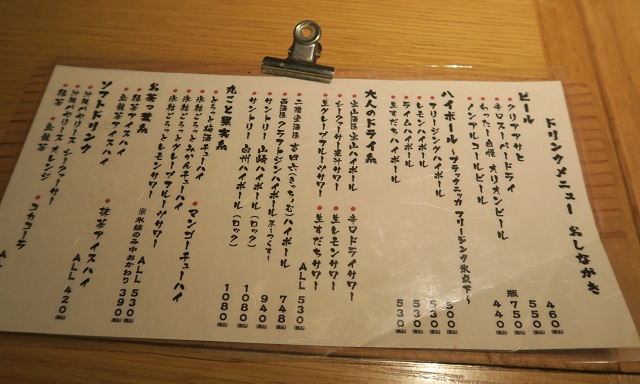 ドリンクメニュー おしながき
ビール
・クリアアサヒ 460(税込)
・辛口スーパードライ 550(税込)
・わったー自慢 オリオンビール 瓶 750(税込)
・ノンアルコールビール 440(税込)
ハイボール ～ブラックニッカ フリージング氷点下～
・フリージングハイボール 500(税込)
・レモンハイボール 530(税込)
・ライムハイボール 530(税込)
・生すだちハイボール 530(税込)
大人のドライ系
宝山ハイボール ・辛口ドライサワー
・シークヮーサー果汁サワー ・生レモンサワー
・生グレープフルーツサワー ・生すだちサワー
ALL 530(税込)
・二階堂酒造 吉四六(きっちょむ)ハイボール 748(税込)
・西酒造 クラフトジンハイボール 尽～つくす～ 940(税込)
・サントリー 山崎ハイボール(ロック) 1080(税込)
・サントリー 白州ハイボール(ロック) 1080(税込)
丸ごと果実系
・とろっと梅酒チューハイ ・マンゴーチューハイ
・氷結ごろっとみかんチューハイ
・氷結ごろっとグレープフルーツサワー
・氷結ごろっとレモンサワー
ALL 530(税込)
※氷結のみ中おかわり390(税込)
お茶っ葉系
・緑茶アイスハイ ・抹茶アイスハイ
・烏龍茶アイスハイ
ALL 420(税込)
ソフトドリンク
・沖縄バヤリース シークヮーサー ・コカコーラ
・沖縄バヤリース オレンジ
・緑茶
・烏龍茶